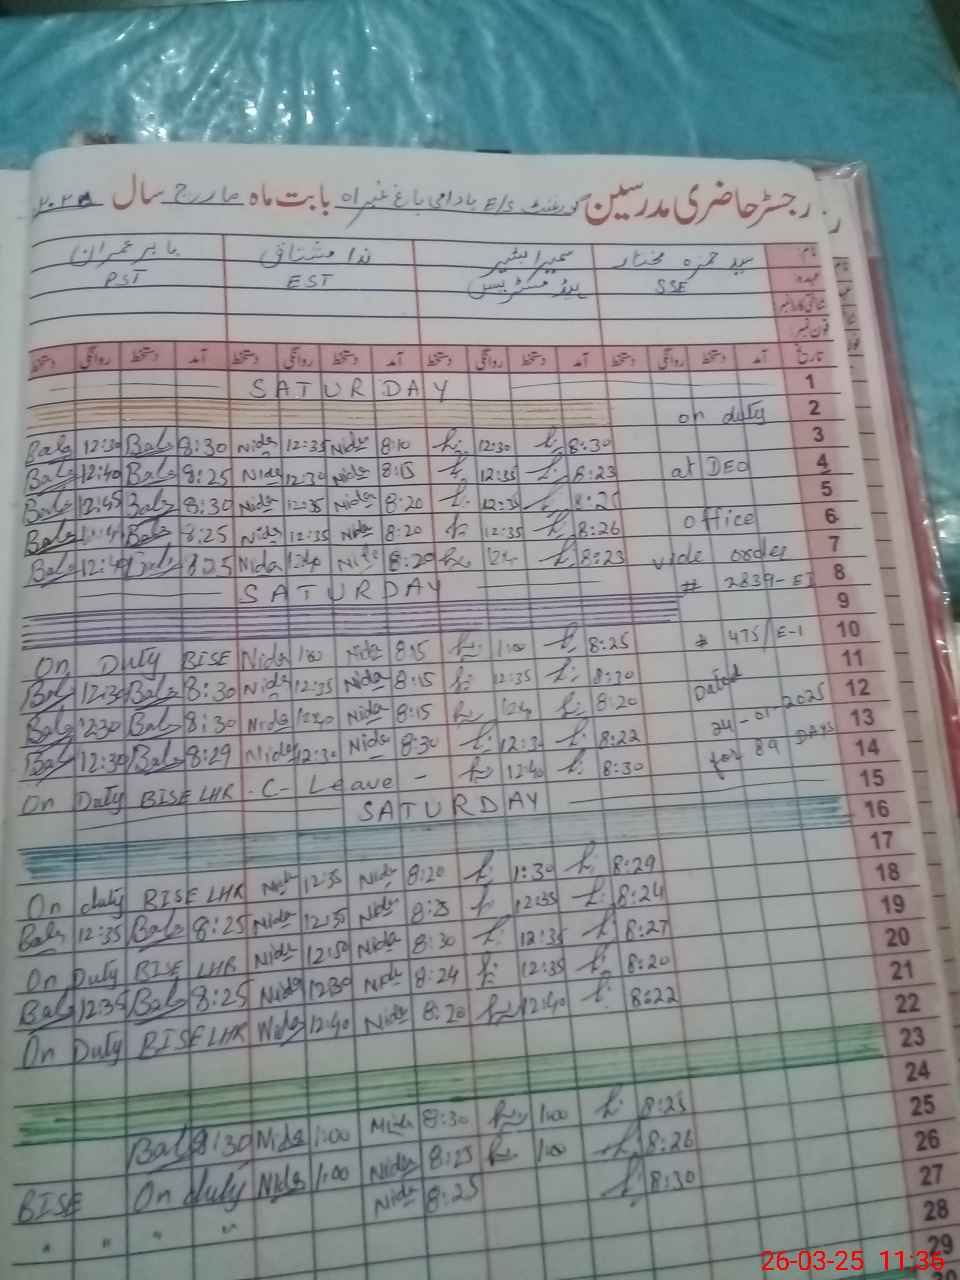 رجسٹر حاضری مدرسین گورنمنٹ E/S بادامی باغ نمبر بابت ماہ مارچ سال ۲۰۲۵
نام سید حمزہ مختار سمیرا بشیر ندا مشتاق بابر عمران
عہدہ SSE ہیڈ مسٹریس EST PST
شناختی کارڈ نمبر
فون نمبر
تاریخ آمد دستخط روانگی دستخط آمد دستخط روانگی دستخط آمد دستخط روانگی دستخط آمد دستخط روانگی دستخط
SATURDAY 1
on duty 2
Bala 12:30 Bala 8:30 Nida 12:35 Nida 8:10 12:30 8:30 3
Bala 12:40 Bala 8:25 Nida 12:30 Nida 8:15 12:35 8:23 at DEO 4
Bala 12:45 Bala 8:30 Nida 12:35 Nida 8:20 12:35 8:25 5
Bala Bala 8:25 Nida 12:35 Nida 8:20 12:35 8:26 office 6
Bala 12:40 Bala 8:25 Nida 12:40 Nida 8:20 8:23 vide order 7
SATURDAY # 2839-EI 8
9
On Duty BISE Nida 1:00 Nida 8:15 1:00 8:25 # 475/E-1 10
Bala 12:30 Bala 8:30 Nida 12:35 Nida 8:15 12:35 8:20 11
Bala 12:30 Bala 8:30 Nida 12:40 Nida 8:15 8:20 Dated 12
Bala 12:30 Bala 8:29 Nida 12:30 Nida 8:30 8:22 24-01-2025 13
On Duty BISE LHR - C - Leave - 12:40 8:30 for 89 DAYS 14
SATURDAY 15
16
On duty BISE LHR Nida 12:35 Nida 8:20 1:30 8:29 17
Bala 12:35 Bala 8:25 Nida 12:35 Nida 8:25 12:35 8:24 18
On Duty BISE LHR Nida 12:50 Nida 8:30 12:35 8:27 19
Bala 12:35 Bala 8:25 Nida 12:30 Nida 8:24 12:35 8:20 20
On Duty BISE LHR Nida 12:40 Nida 8:20 12:40 8:22 21
22
23
Bala 8:30 Nida 1:00 Nida 8:30 1:00 8:25 24
BISE On duty Nida 1:00 Nida 8:25 1:00 8:26 25
" " " " Nida 8:25 8:30 26
27
28
29
26-03-25 11:36